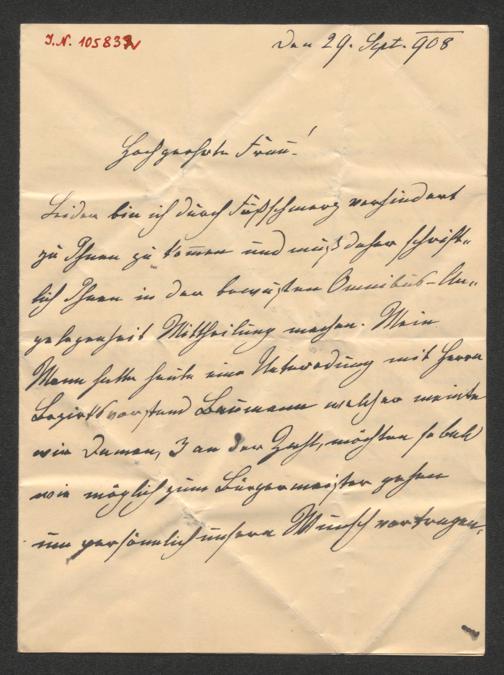 J.N. 105832
Den 29. Sept. 908
Hochgeehrte Frau!
Leider bin ich durch Fußschmerz verhindert
zu Ihnen zu kommen und muß daher schrift-
lich Ihnen in der bewußten Omnibus-An-
gelegenheit Mittheilung machen. Mein
Mann hatte heute eine Unterredung mit Herrn
Bezirksvorstand Baumann welcher meinte
wir Damen, 3 an der Zahl, möchten so bald
wie möglich zum Bürgermeister gehen
um persönlich unsern Wunsch vortragen.